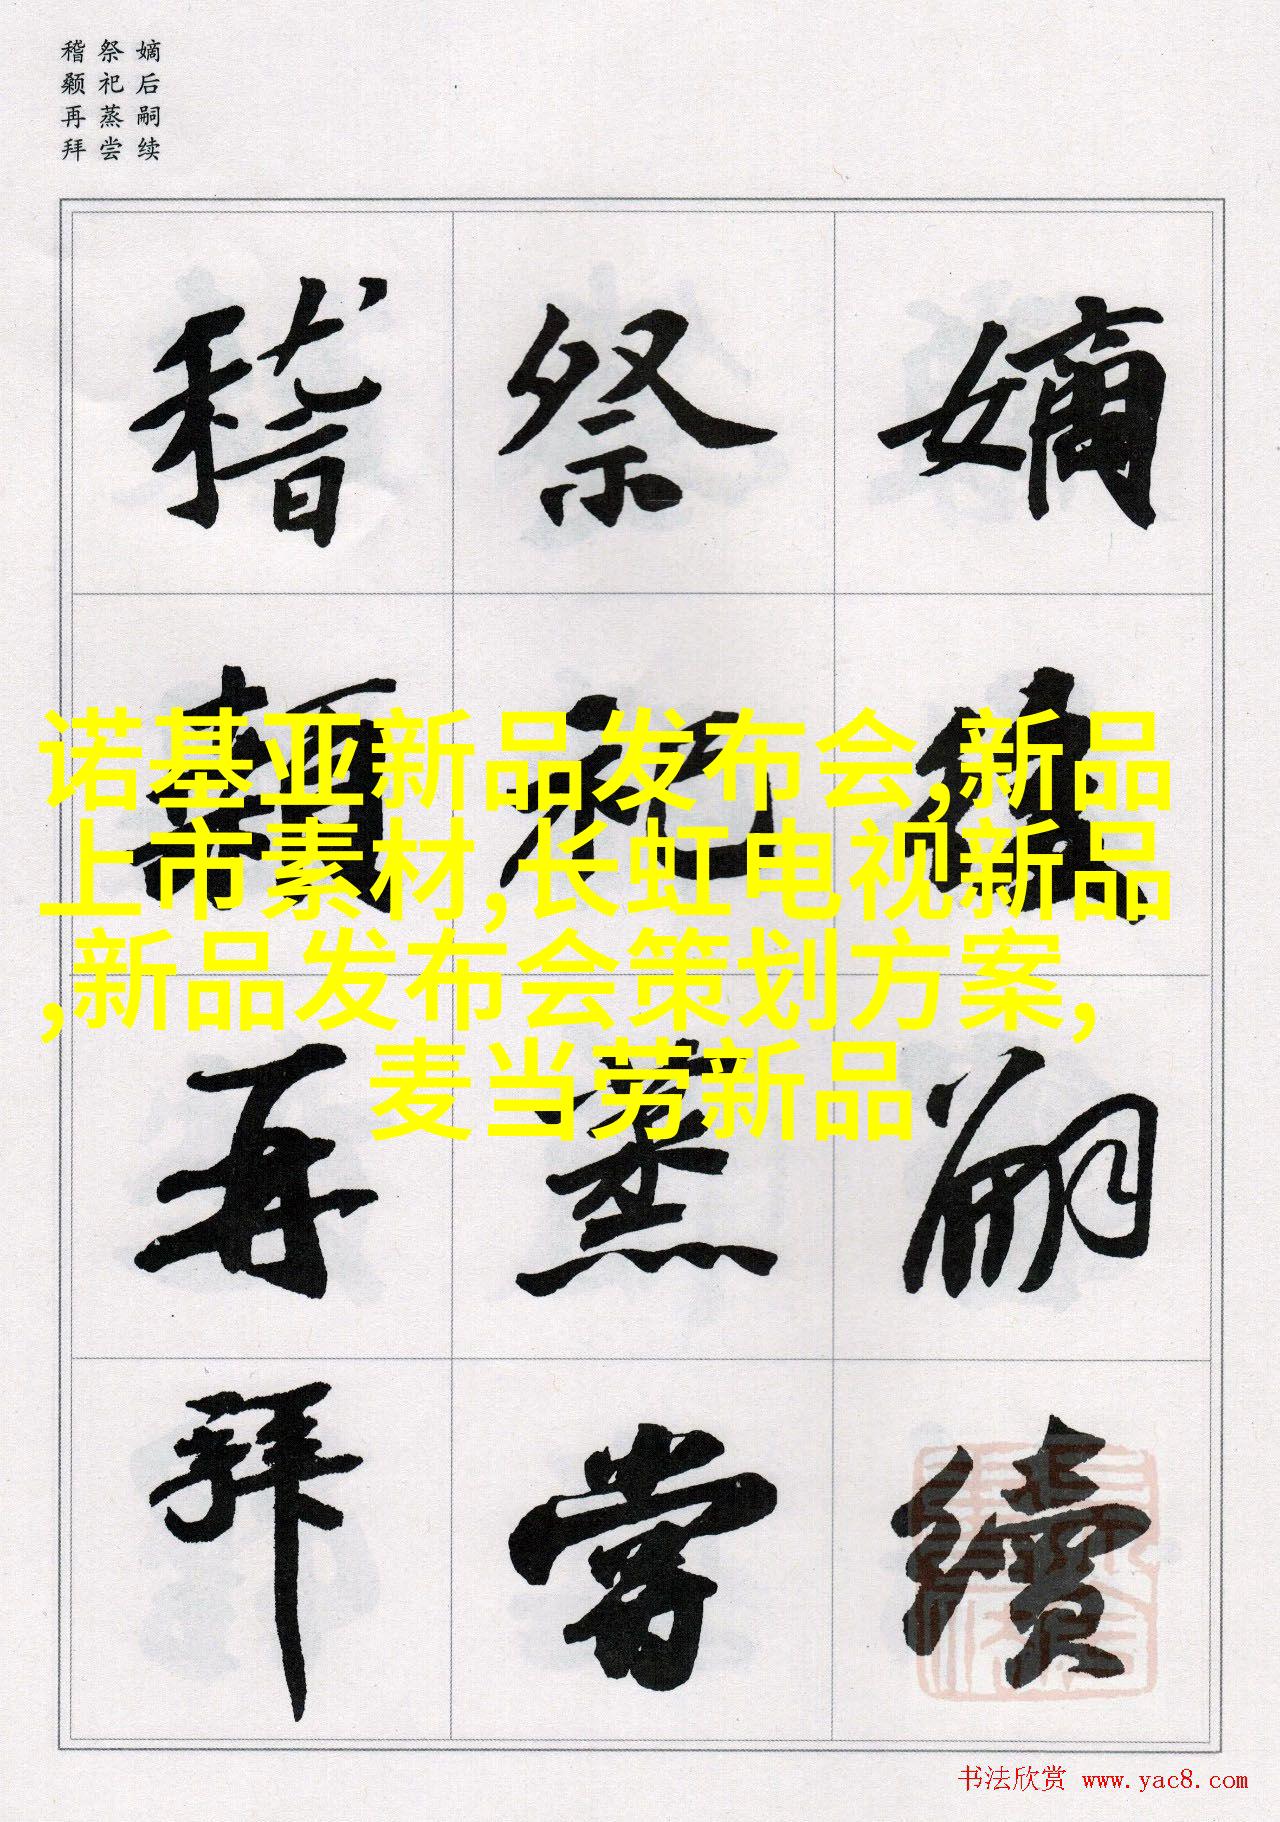 嫡后嗣续
祭祀蒸尝
稽颡再拜
嫡後嗣續
祭祀蒸嘗
稽顙再拜
诺基亚新品发布会,新品
上市素材,长虹电视新品
,新品发布会策划方案,
麦当劳新品
书法欣赏 www.yac8.com